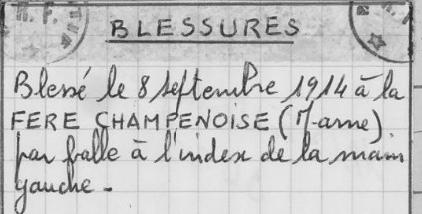 BLESSURES
Blessé le 8 septembre 1914 à la
FERE CHAMPENOISE (Marne)
par balle à l'index de la main
gauche -